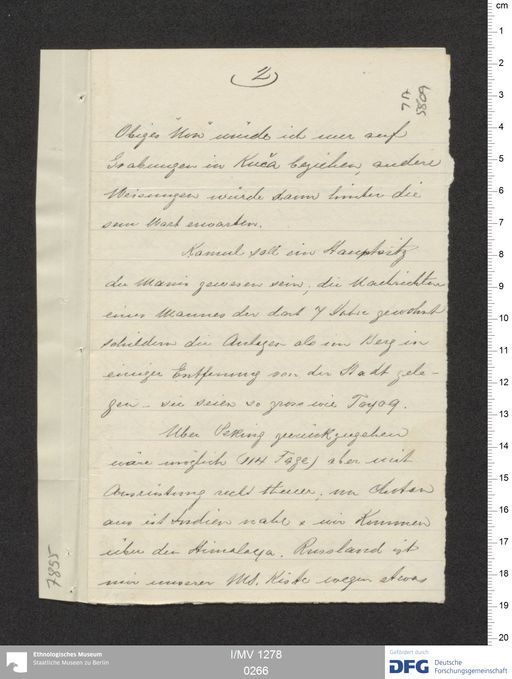 (2)
TA
6085
Obiges "Non" würde ich nur auf
Grabungen in Kuča beziehen, andere
Weisungen würde dann hinter die
sem Wort erwarten.
Kamul soll ein Hauptsitz
der Manis gewesen sein, die Nachrichten
eines Mannes der dort 7 Jahre gewohnt
schildern die Anlagen als im Berg in
einiger Entfernung von der Stadt gele-
gen - sie seien so gross wie Toyoq.
Über Peking zurückzugehen
wäre möglich (114 Tage) aber mit
Ausrüstung recht theuer, von Chotan
aus ist Indien nahe & wir kommen
über den Himalaya. Russland ist
mir unserer MS. Kiste wegen etwas
7855
Ethnologisches Museum
Staatliche Museen zu Berlin
I/MV 1278
0266
Gefördert durch
DFG Deutsche
Forschungsgemeinschaft
cm
1
2
3
4
5
6
7
8
9
10
11
12
13
14
15
16
17
18
19
20